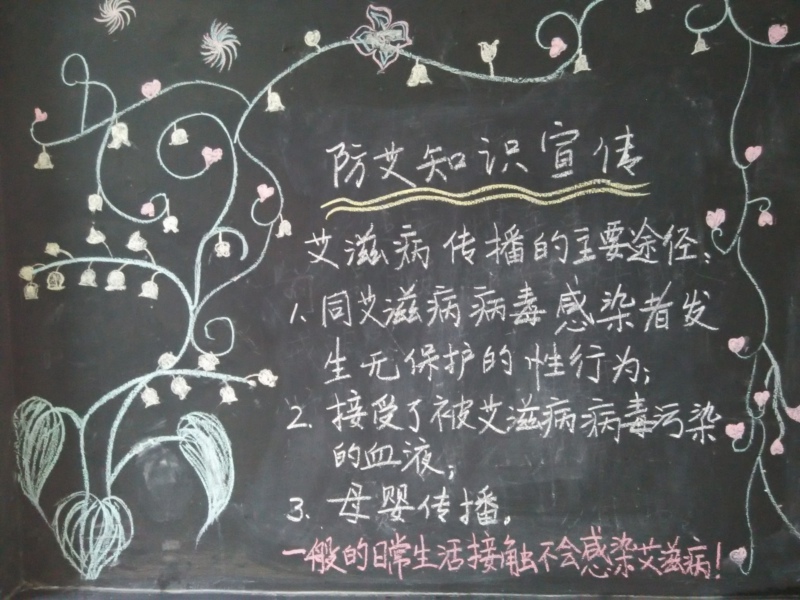 防艾知识宣传
艾滋病传播的主要途径:
1. 同艾滋病病毒感染者发
生无保护的性行为;
2. 接受了被艾滋病病毒污染
的血液;
3. 母婴传播。
一般的日常生活接触不会感染艾滋病!